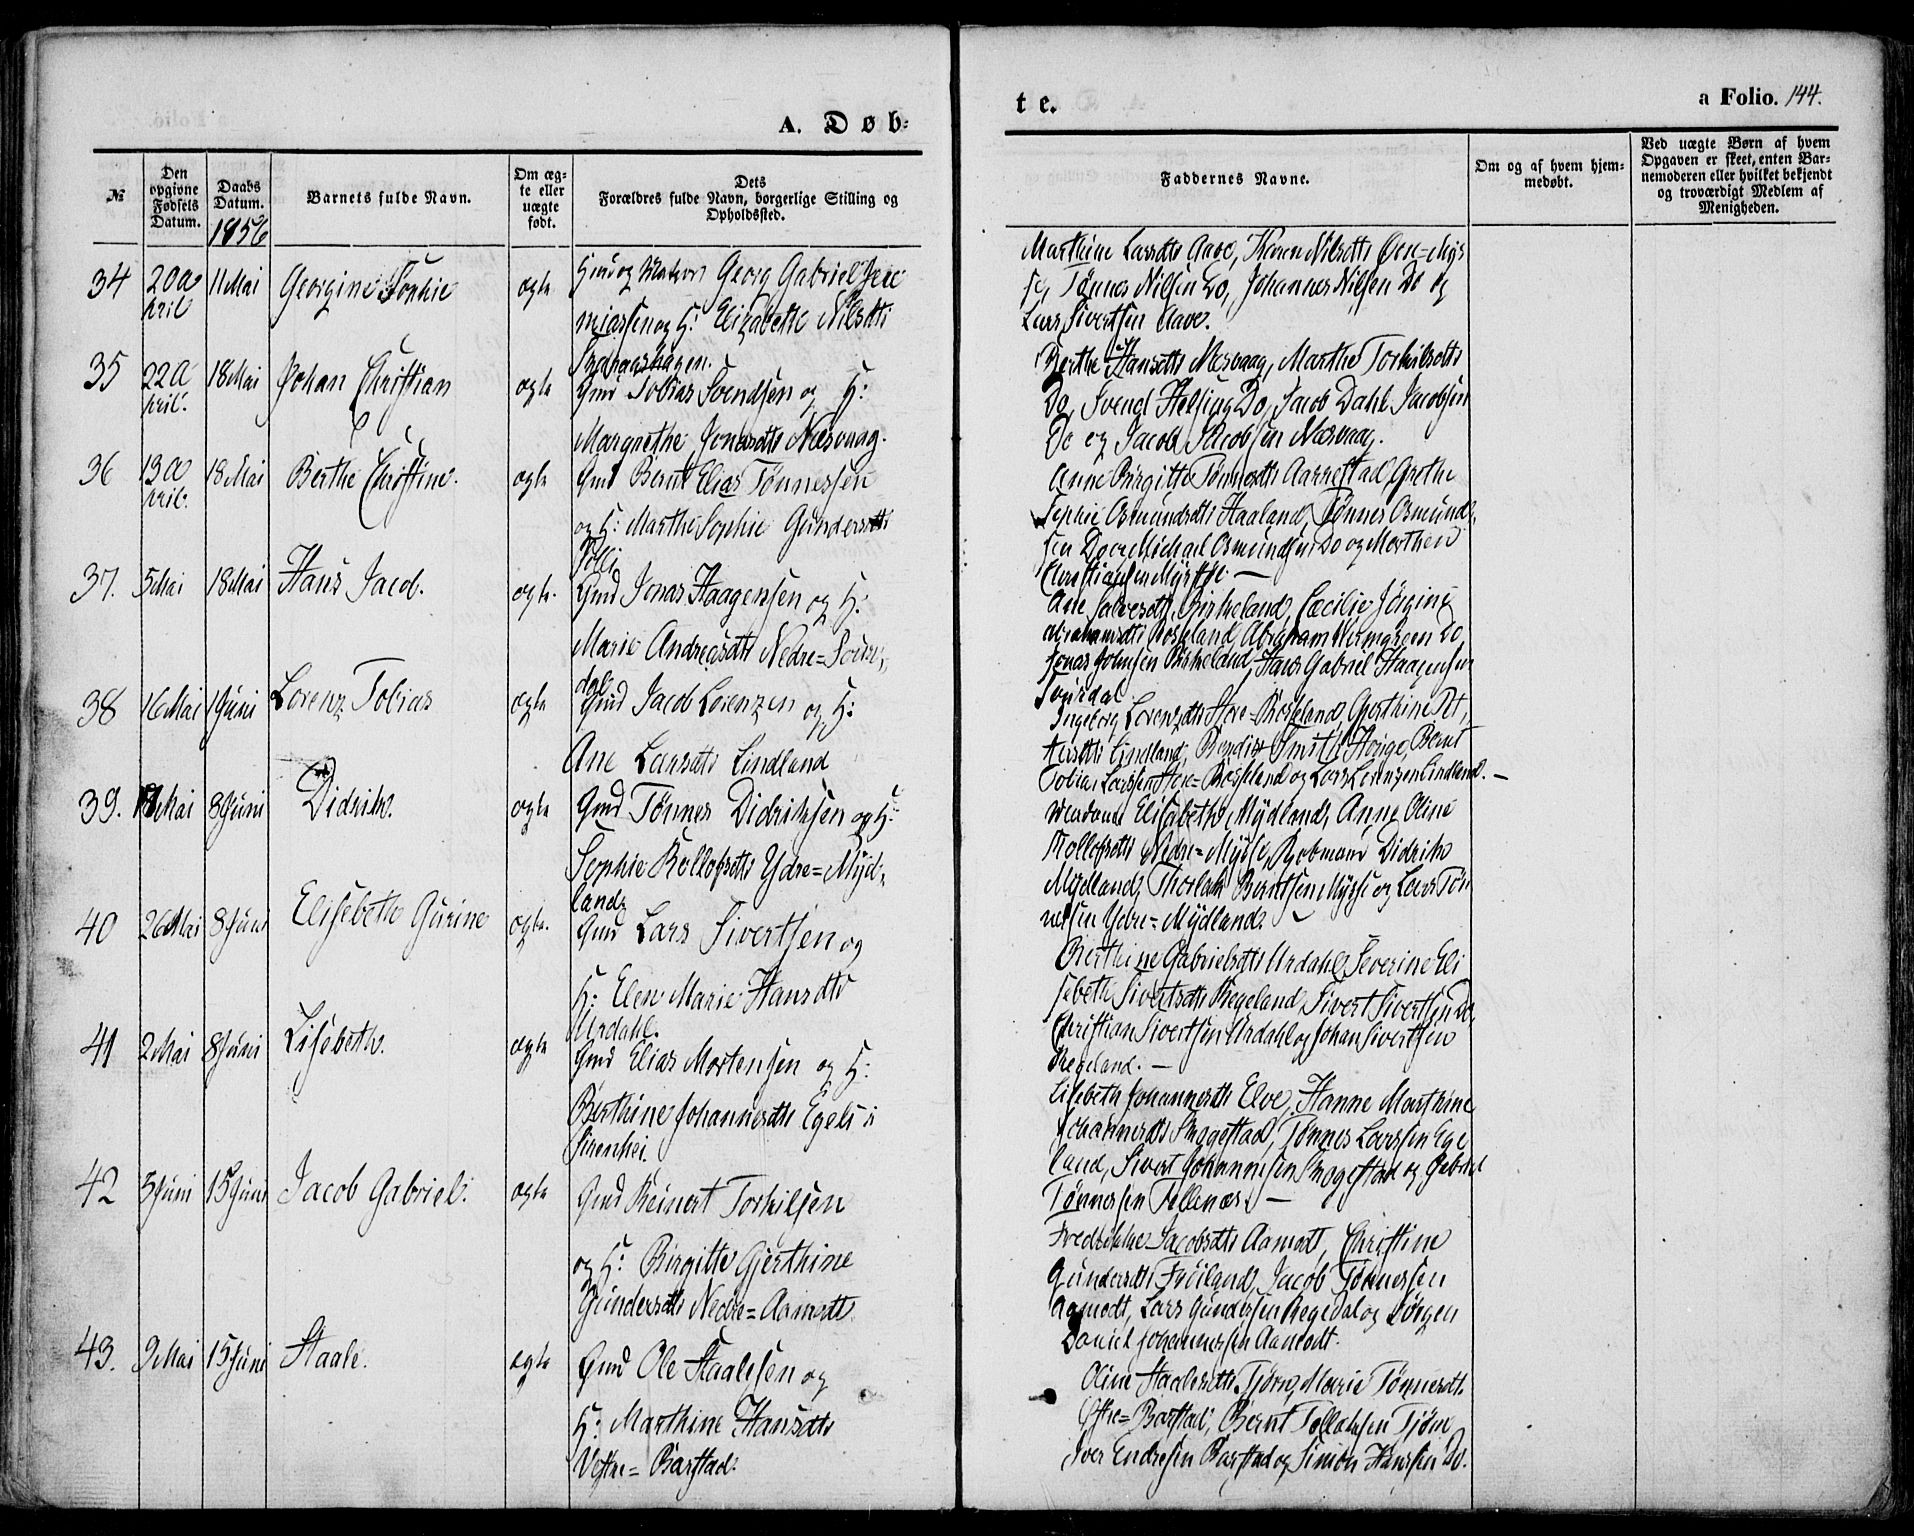 A. Døb=
te.
a Folio. 144.
№
Den opgivne Fødsels Datum.
Daabs Datum.
1856
Barnets fulde Navn.
Om ægte eller uægte født.
Dets
Forældres fulde Navn, borgerlige Stilling og Opholdssted.
Faddernes Navne.
Om og af hvem hjemmedøbt.
Ved uægte Børn af hvem Opgaven er skeet, enten Barnemoderen eller hvilket bekjendt og troværdigt Medlem af Menigheden.
34 20 April 11 Mai Georgine Sophie ægte
Georg Gabriel Jere
miassen og H: Elizabeth Nilsdtr
Marthine Larsdtr Aave, Karen Nilsdtr
Tønnes Nilsen Do, Johannes Nilsen Do og
Lars Sivertsen Aave.
35 22 April. 18 Mai Johan Christian ægte
Gmd Tobias Svendsen og H:
Margrethe Jonasdtr Næsvaag.
Berthe Hansdtr Næsvaag, Marthe Torkilsdtr
Do, Svend Helsing Do, Jacob Dahl Jacobsen
Do og Jacob Jacobsen Næsvaag.
36 13 April. 18 Mai Berthe Christine. ægte
Gmd Bernt Elias Tønnessen
og H: Marthe Sophie Gundersdtr
Anne Birgitte Tønnesdtr Aarrestad, Grethe
Sophie Osmundsdtr Haaland, Tønnes Osmund
sen Do og Michael Osmundsen Do og Morthen
Christiansen Myssse. —
37. 5 Mai 18 Mai Hans Jacob. ægte.
Gmd Jonas Haagensen og H:
Marie Andreasdtr Nedre=Soirdal
Ane Salvesdtr Birkeland, Cæcilie Jörgine
Abrahamsdtr Röseland, Abraham Do,
Jonas Johnsen Birkeland, Hans Gabriel Haagensen
Soirdal
38 16 Mai 1 Juni Lorenz Tobias ægte
Gmd Jacob Lorenzen og H:
Ane Larsdtr Lindland
Ingeborg Lorenzdtr Store=Röseland, Gjerthine Pet
tersdtr Lindland, Bendix Smith Hauge, Bernt
Tobias Larssen Store=Röseland og Lars Lorenzen Lindland. —
39. Mai 8 Juni Didrik. ægte
Gmd Tønnes Didriksen og H:
Sophie Rollofsdtr Ydre=Myd
land.
Madame Elisabeth Mydland, Anne Oline
Rollofsdtr Nedre=Mysse, Didrik
Mydland, Thorlak Berntsen Mysse og Lars Tøn
nessen Ydre=Mydland.
40 26 Mai 8 Juni Elisebeth Gurine ægte.
Gmd Lars Sivertsen og
H: Elen Marie Hansdtr
Urdahl.
Berthine Gabrielsdtr Urdahl, Severine Eli
sebeth Sivertsdtr Regeland, Sivert Sivertsen Do,
Christian Sivertsen Urdahl og Johan Sivertsen
Regeland. —
41 2 Mai 8 Juni Lisebeth. ægte
Gmd Elias Mortensen og H:
Berthine Johannesdtr Egeli i
Sirenhei.
Lisebeth Johannesdtr Elve, Hanne Marthine
Johannesdtr Skogestad, Tønnes Larssen Ege
land, Sivert Johannessen Skogestad og Gabriel
Tønnessen Tellenæs. —
42 5 Juni 15 Juni Jacob Gabriel. ægte
Gmd Reinert Torkilsen
og H: Birgitte Gjerthine
Gundersdtr Nedre=Aamodt.
Fredrikke Jacobsdtr Aamodt, Christine
Gundersdtr Frøiland, Jacob Tønnessen
Aamodt, Lars Gundersen Regedal og Jørgen
Daniel Johannessen Aamodt.
43. 9 Mai 15 Juni Staale. ægte
Gmd Ole Staalesen og
H: Marthine Hansdtr
Vestre=Barstad.
Oline Staalesdtr Tjørn, Marie Tønnesdtr
Østre=Barstad, Bernt Tollaksen Tjørn,
Iver Endresen Barstad og Simon Hanssen Do.